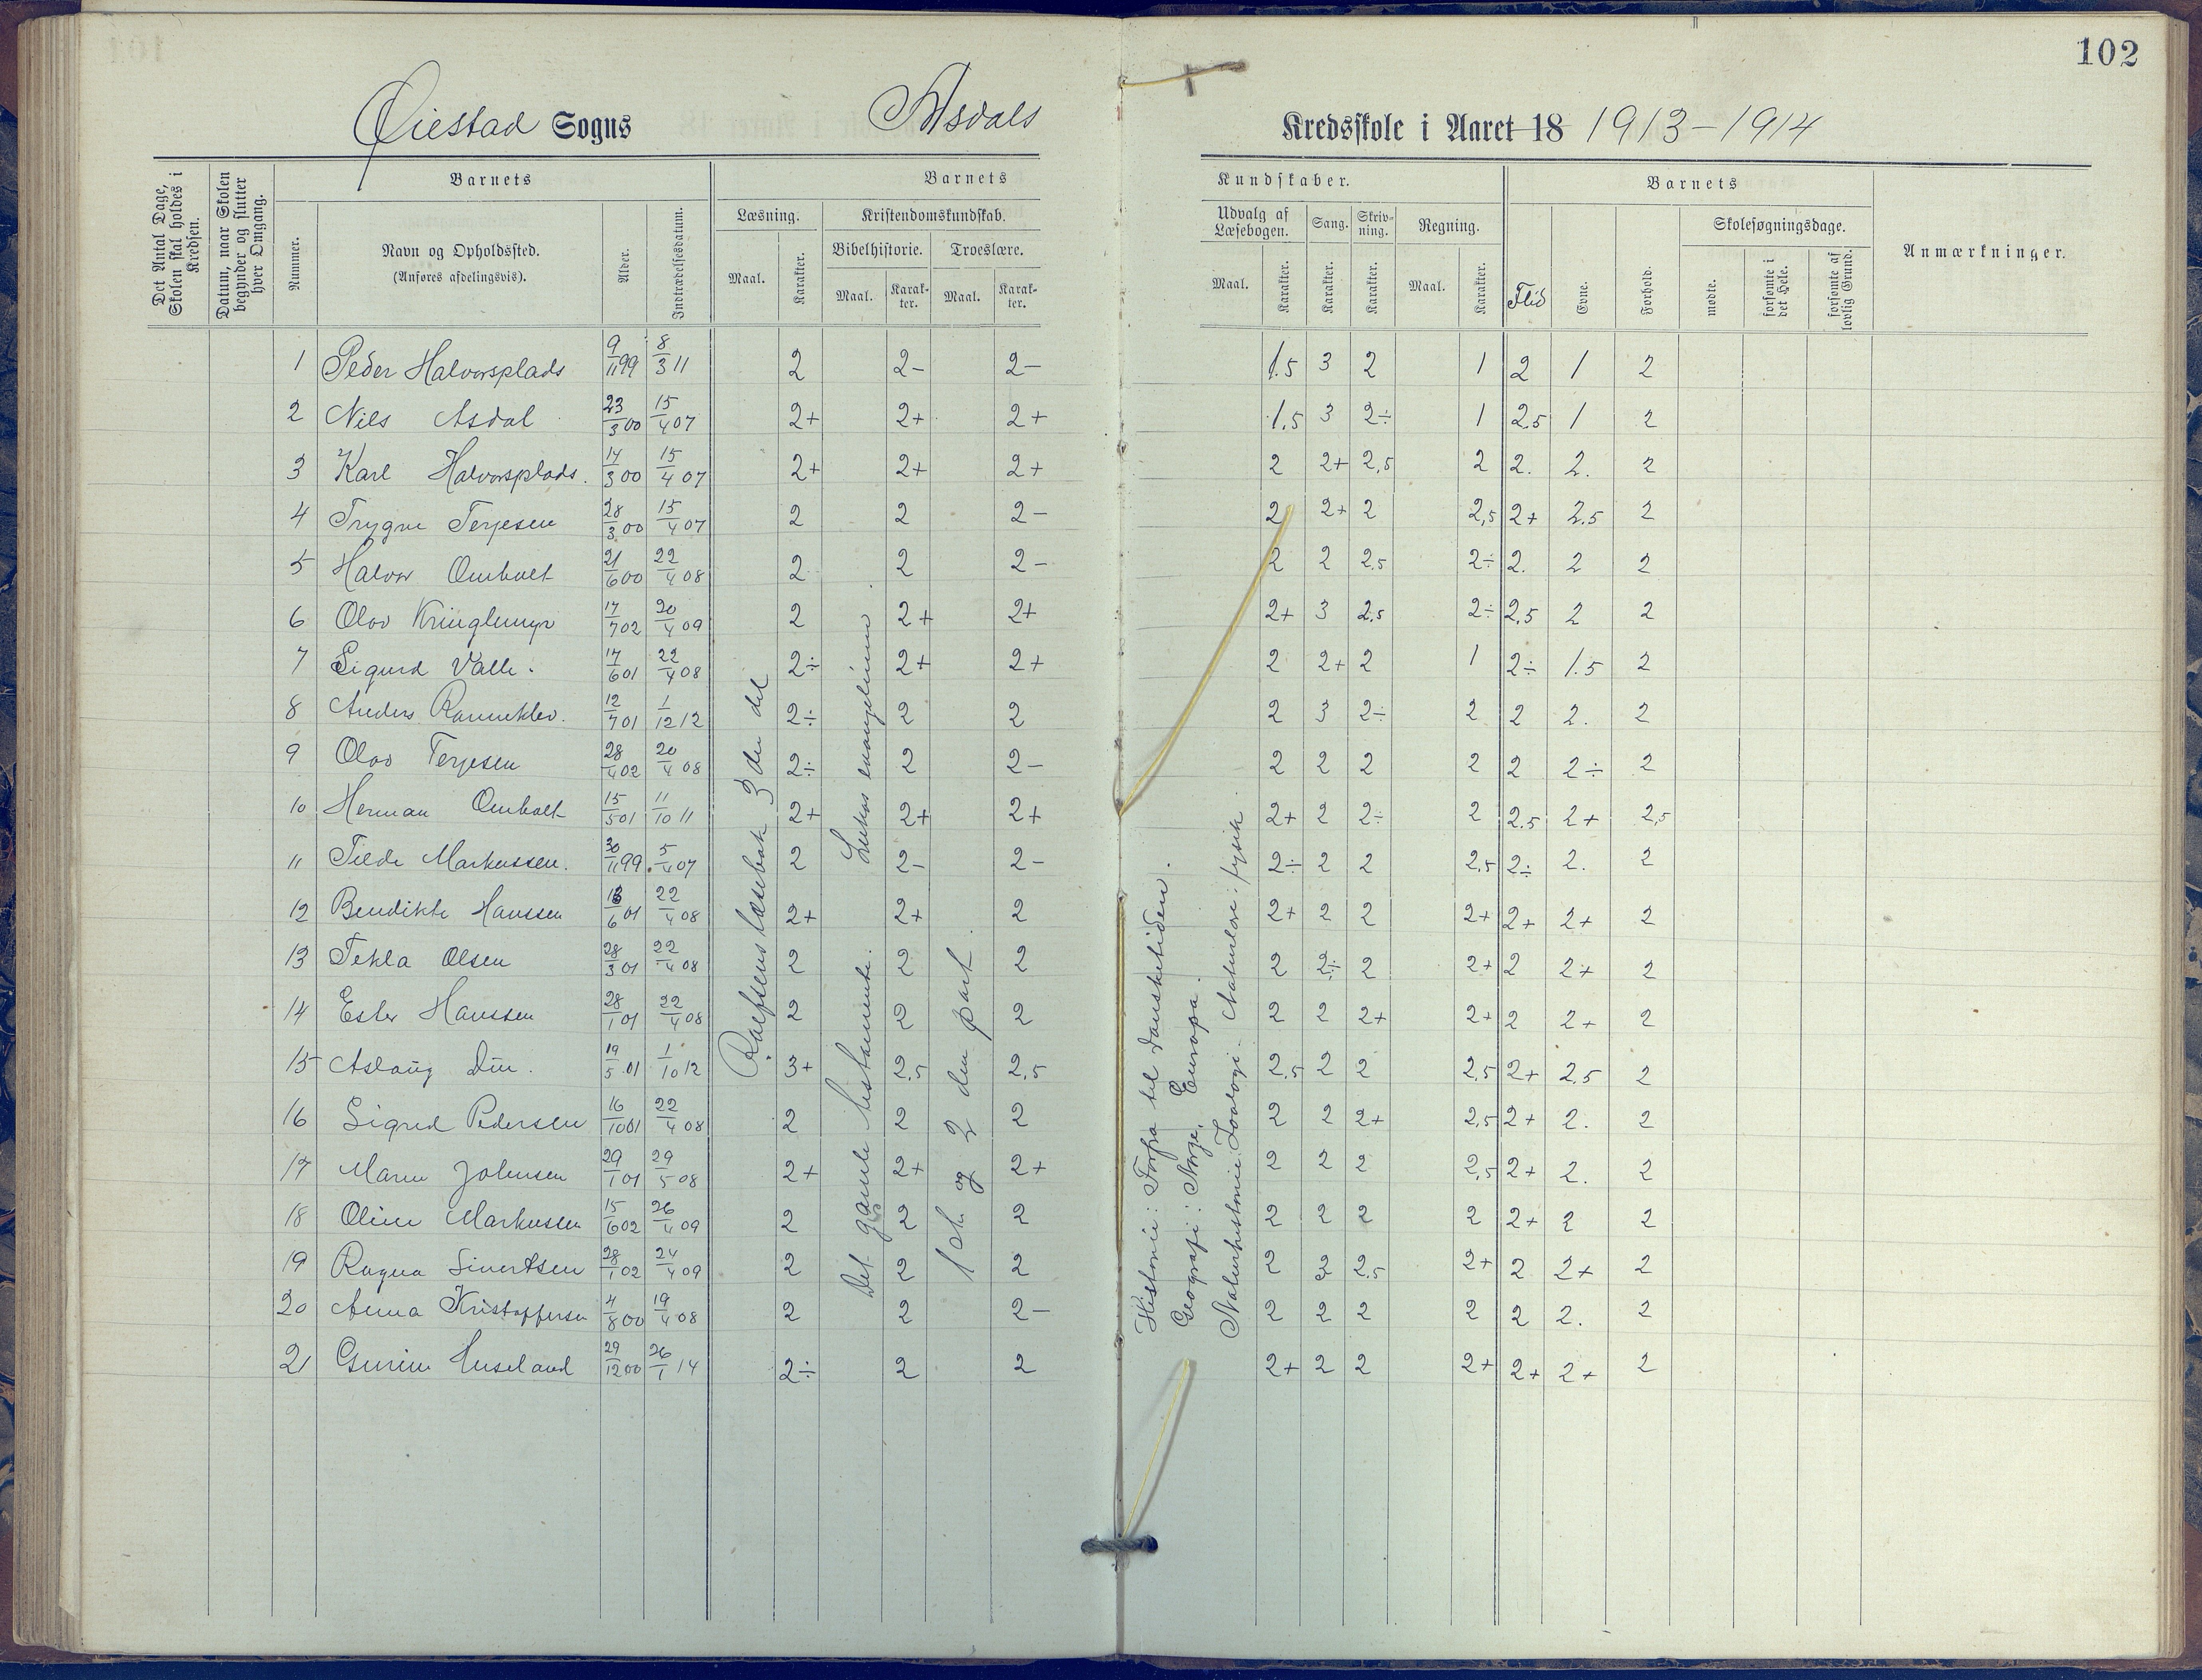 102
Øiestad Sogns Asdals Kredsskole i Aaret 18 1913-1914
Det Antal Dage, Skolen skal holdes i Kredsen.
Datum, naar Skolen begynder og slutter hver Omgang.
Barnets Barnets Kundskaber. Barnets
Nummer. Navn og Opholdssted. (Anføres afdelingsvis). Alder. Indtrædelsesdatum.
Læsning. Kristendomskundskab. Udvalg af Læsebogen. Sang. Skrivning. Regning. Skolesøgningsdage. Anmærkninger.
Bibelhistorie. Troeslære.
Maal. Karakter. Maal. Karakter. Maal. Karakter. Maal. Karakter. Karakter. Karakter. Maal. Karakter. Flid Evne. Forhold. mødte. forsømte i det Hele. forsømte af lovlig Grund.
1 Peder Halvorsplads 9/11 99 8/3 11 2 2- 2- 1.5 3 2 1 2 1 2
2 Nils Asdal 23/3 00 15/4 07 2+ 2+ 2+ 1,5 3 2÷ 1 2,5 1 2
3 Karl Halvorsplads. 14/3 00 15/4 07 2+ 2+ 2+ 2 2+ 2,5 2 2. 2. 2
4 Trygve Terjesen 28/3 00 15/4 07 2 2 2- 2 2+ 2 2,5 2+ 2.5 2
5 Halvor Omholt 21/6 00 22/4 08 2 2 2- 2 2 2.5 2÷ 2. 2 2
6 Olav Kringlemyr 17/7 02 20/4 09 2 2+ 2+ 2+ 3 2,5 2÷ 2,5 2 2
7 Sigurd Valle. 17/6 01 22/4 08 2÷ 2+ 2+ 2 2+ 2 1 2÷ 1.5 2
8 Anders Ranneklev. 12/7 01 1/12 12 2÷ 2 2 2 3 2÷ 2 2 2. 2
9 Olav Terjesen 28/4 02 20/4 08 2÷ 2 2- 2 2 2 2 2 2÷ 2
10 Herman Omholt 15/5 01 11/10 11 2+ 2+ 2+ 2+ 2 2÷ 2 2.5 2+ 2,5
11 Tilda Markussen. 30/11 99 5/4 07 2 2- 2- 2÷ 2 2 2,5 2÷ 2. 2
12 Bendikte Hanssen 13/6 01 22/4 08 2+ 2+ 2 2+ 2 2 2+ 2+ 2+ 2
13 Tekla Olsen 28/3 01 22/4 08 2 2 2 2 2÷ 2 2+ 2 2+ 2
14 Ester Hanssen 28/1 01 22/4 08 2 2 2 2 2 2+ 2+ 2 2+ 2
15 Aslaug Die. 19/5 01 1/10 12 3+ 2,5 2,5 2,5 2 2 2,5 2+ 2,5 2
16 Sigrid Pedersen 16/10 01 22/4 08 2 2 2 2 2 2+ 2,5 2+ 2. 2
17 Maren Johnsen 29/1 01 29/5 08 2+ 2+ 2+ 2 2 2 2,5 2+ 2. 2
18 Oline Markussen 15/6 02 26/4 09 2 2 2 2 2 2 2 2+ 2 2
19 Ragna Sivertsen 28/1 02 24/4 09 2 2 2 2 2 2.5 2+ 2 2+ 2
20 Anna Kristoffersen 4/8 00 19/4 08 2 2 2- 2 2 2 2 2 2. 2
21 Gurine Huseland 29/12 00 26/1 14 2÷ 2 2 2+ 2 2 2+ 2+ 2+ 2
Rolfsens læsebok 3 die del
Det gamle testamente. Lukas evangelium
1ste og 2 den part.
Historie: Forfra til Dansketiden.
Geografi: Norge, Europa.
Naturhistorie: Zoologi - Naturlære: fysik.